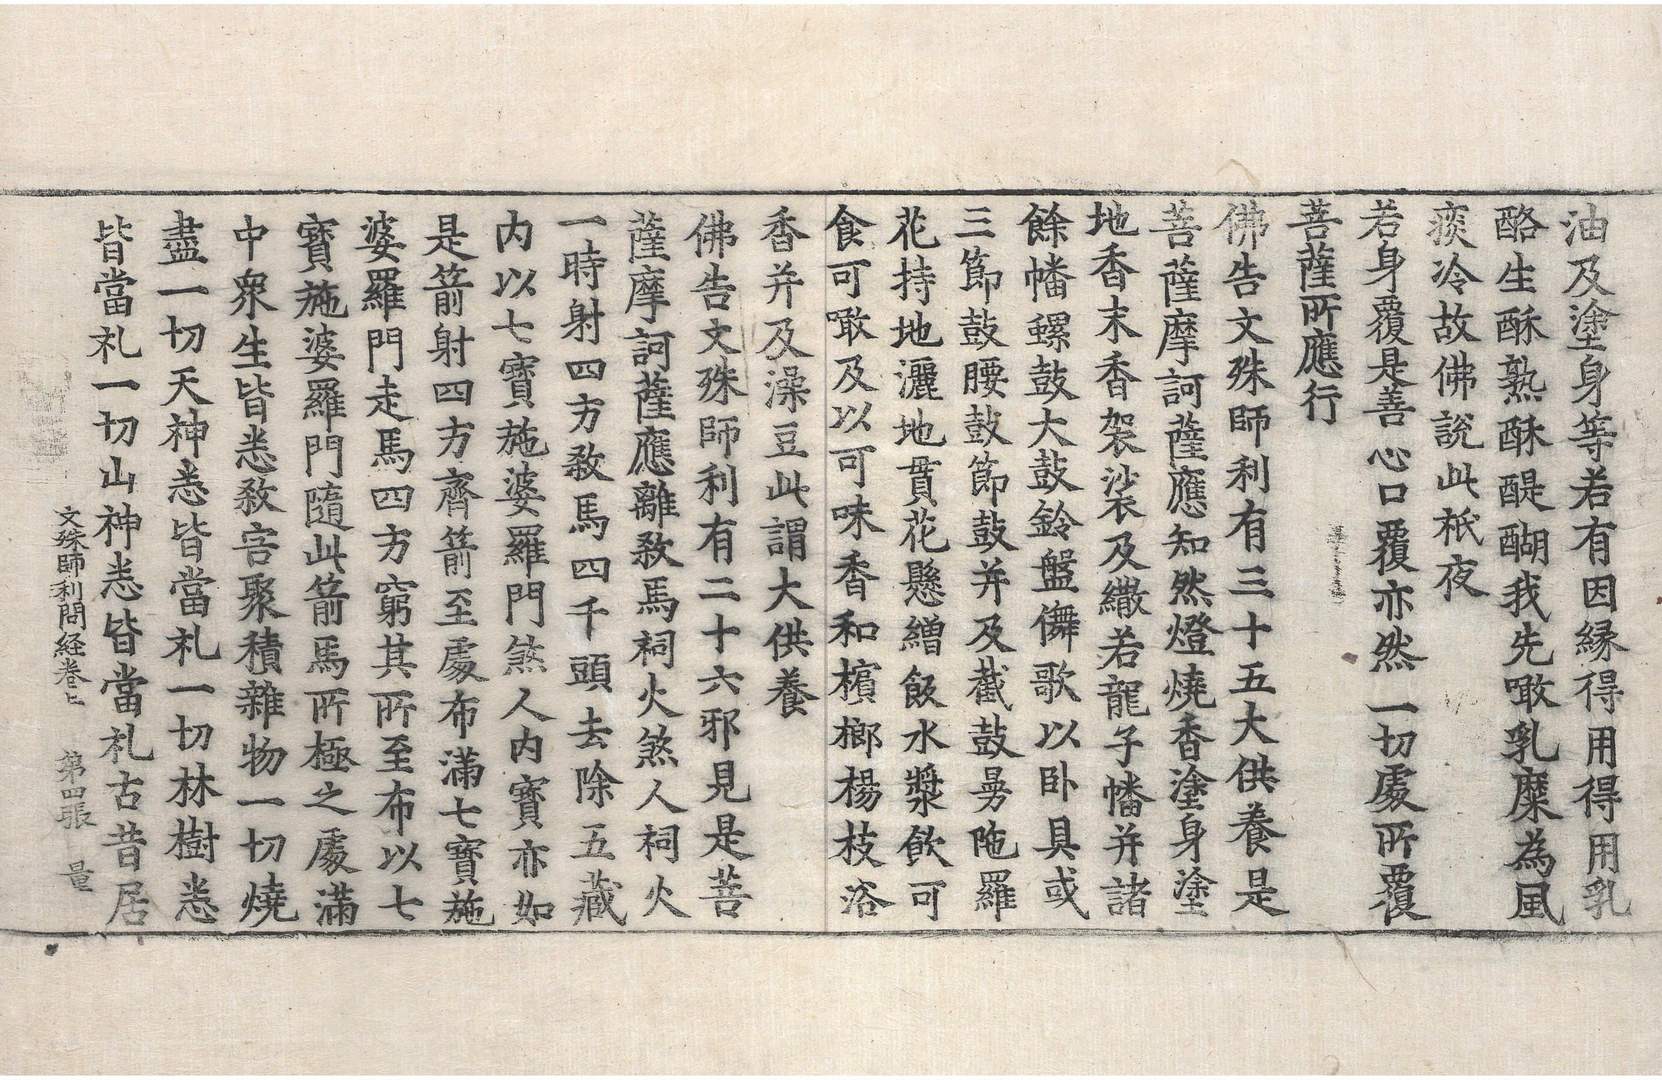 油及塗身等若有因縁得用得用乳
酪生酥熟酥醍醐我先噉乳糜為風
痰冷故佛說此祇夜
若身覆是善 心口覆亦然 一切處所覆
菩薩所應行
佛告文殊師利有三十五大供養是
菩薩摩訶薩應知然燈燒香塗身塗
地香末香袈裟及繖若龍子幡并諸
餘幡螺鼓大鼓鈴盤儛歌以卧具或
三節鼓腰鼓節鼓并及截鼓曼陁羅
花持地灑地貫花懸繒飯水漿飲可
食可噉及以可味香和檳榔楊枝浴
香并及澡豆此謂大供養
佛告文殊師利有二十六邪見是菩
薩摩訶薩應離敎馬祠火煞人祠火
一時射四方敎馬四千頭去除五藏
内以七寶施婆羅門煞人内寶亦如
是箭射四方齊箭至處布滿七寶施
婆羅門走馬四方窮其所至布以七
寶施婆羅門隨此箭馬所極之處滿
中衆生皆悉敎害聚積雜物一切燒
盡一切天神悉皆當礼一切林樹悉
皆當礼一切山神悉皆當礼古昔居
文殊師利問経卷上 第四張 量